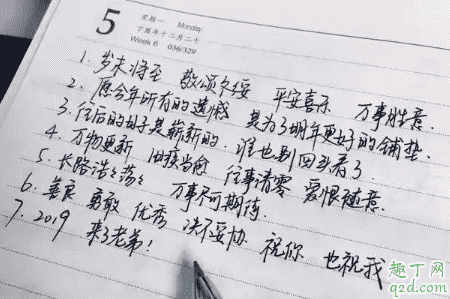 5 星期一 Monday
丁酉年十二月二十
Week 6 036/329
1. 岁末将至 敬颂冬绥 平安喜乐 万事胜意.
2. 愿今年所有的遗憾 是为了明年更好的铺垫.
3. 往后的日子是崭新的, 谁也别回头看了.
4. 万物更新 旧疾当愈 往事清零 爱恨随意.
5. 长路浩浩荡荡 万事尽可期待.
6. 善良 勇敢 优秀 决不妥协 祝你 也祝我
7. 2019 来了老弟!
趣丁网
q2d.com